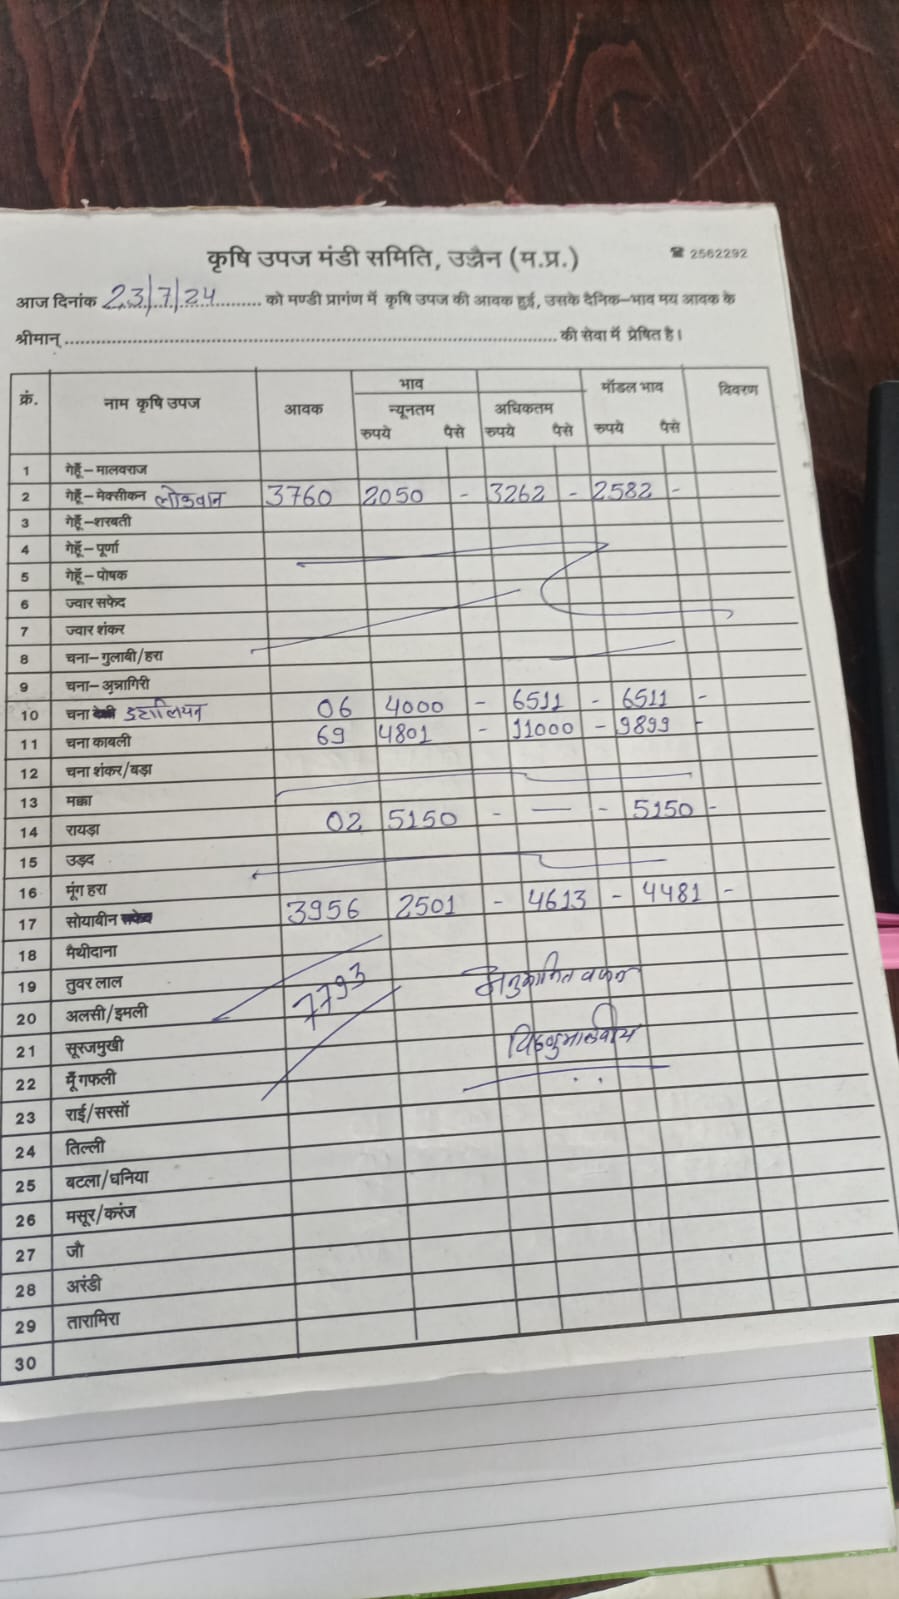 कृषि उपज मंडी समिति, उज्जैन (म.प्र.) ☎ 2562292
आज दिनांक 23/7/24 को मण्डी प्रागंण में कृषि उपज की आवक हुई, उसके दैनिक-भाव मय आवक के
श्रीमान् ........ की सेवा में प्रेषित है।
क्रं. नाम कृषि उपज आवक भाव मॉडल भाव विवरण
न्यूनतम अधिकतम
रुपये पैसे रुपये पैसे रुपये पैसे
1 गेहूँ-मालवराज
2 गेहूँ-मेक्सीकन लोकवान 3760 2050 - 3262 - 2582 -
3 गेहूँ-शरबती
4 गेहूँ-पूर्णा
5 गेहूँ-पोषक
6 ज्वार सफेद
7 ज्वार शंकर
8 चना-गुलाबी/हरा
9 चना-अन्नागिरी
10 चना देशी इटालियन 06 4000 - 6511 - 6511 -
11 चना काबली 69 4801 - 11000 - 9899 -
12 चना शंकर/बड़ा
13 मक्का
14 रायड़ा 02 5150 - — - 5150 -
15 उड़द
16 मूंग हरा
17 सोयाबीन सफेद 3956 2501 - 4613 - 4481 -
18 मैथीदाना
19 तुवर लाल
20 अलसी/इमली 7793
21 सूरजमुखी
22 मूँगफली
23 राई/सरसों
24 तिल्ली
25 बटला/धनिया
26 मसूर/करंज
27 जौ
28 अरंडी
29 तारामिरा
30